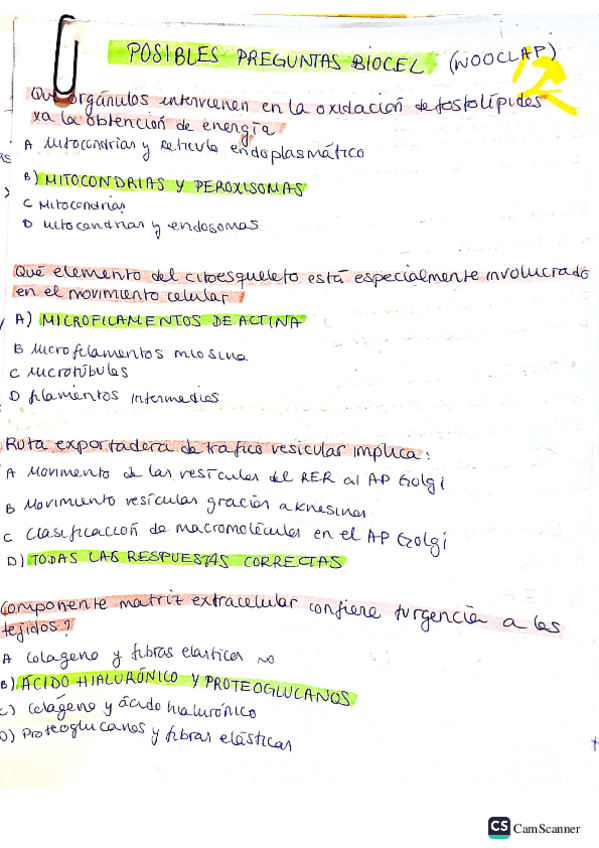 POSIBLES PREGUNTAS BIOCEL (WOOCLAP)
Qué orgánulos intervienen en la oxidación de fosfolípidos
xa la obtención de energía
A Mitocondrias y retículo endoplasmático
B) MITOCONDRIAS Y PEROXISOMAS
C Mitocondrias
D Mitocondrias y endosomas
Qué elemento del citoesqueleto está especialmente involucrado
en el movimiento celular?
A) MICROFILAMENTOS DE ACTINA
B Microfilamentos miosina
C Microtúbulos
D filamentos intermedios
Ruta exportadora de trafico vesicular implica:
A Movimento de las vesículas del RER al AP Golgi
B Movimiento vesículas gracias a kinesinas
C Clasificación de macromoléculas en el AP Golgi
D) TODAS LAS RESPUESTAS CORRECTAS
Componente matriz extracelular confiere turgencia a los
tejidos?
A Colageno y fibras elasticas no
B) ÁCIDO HIALURÓNICO Y PROTEOGLUCANOS
C) Colágeno y ácido hialurónico
D) Proteoglucanos y fibras elásticas
CS CamScanner